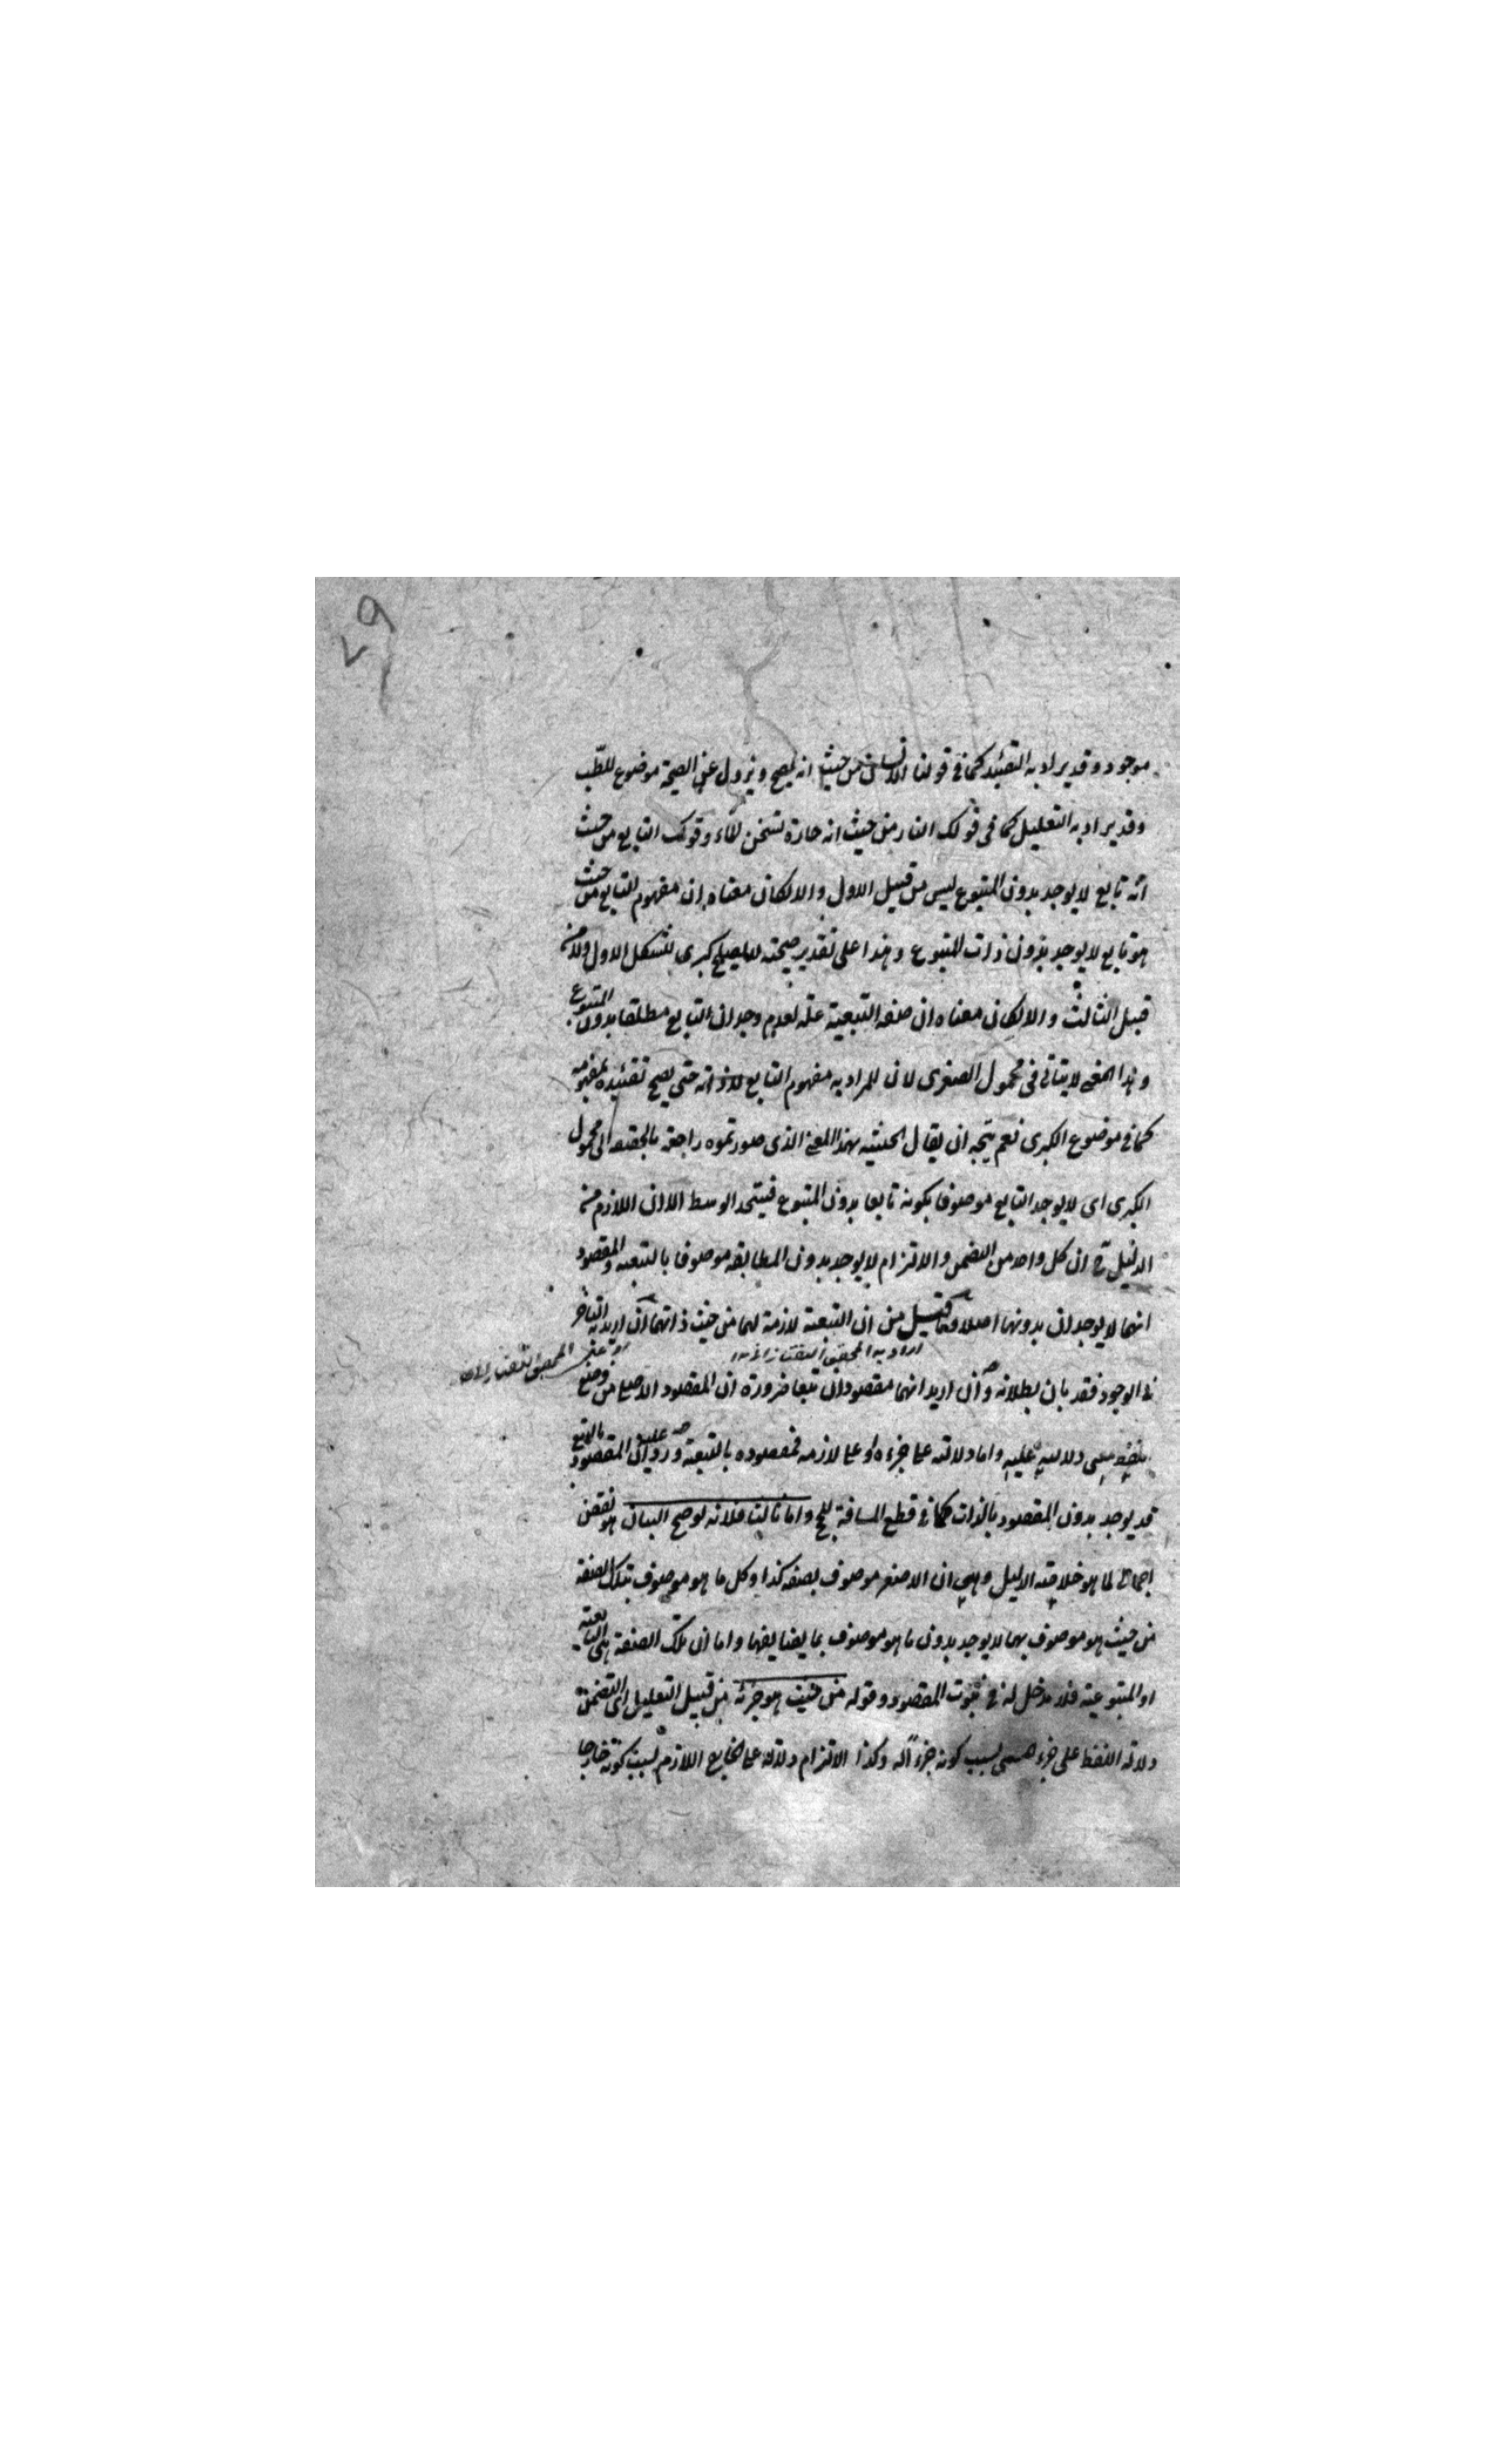 موجود وقد يراد به التقييد كما في قولنا الانسان من حيث انه يصح ويزول عن الصحة موضوع للطب
وقد يراد به التعليل كما في قولك النار من حيث انه حارة تسخن الماء وقولك التابع من حيث
انه تابع لا يوجد بدون المتبوع ليس من قبيل الاول والا لكان معناه ان مفهوم التابع من حيث
هو تابع لا يوجد بدون ذات المتبوع وهذا على تقدير صحته لا يصلح كبرى للشكل الاول ولا من
قبيل الثالث والا لكان معناه ان صفة التبعية علة لعدم وجدان التابع مطلقا بدون المتبوع
وهذا المعنى لا يتاتى في محمول الصغرى لان المراد به مفهوم التابع لا ذاته حتى يصح تقييده بمفهومه
كما في موضوع الكبرى نعم يتجه ان يقال الحيثية بهذا المعنى الذي صورتموه راجعة بالحقيقة الى محمول
الكبرى اى لا يوجد التابع موصوفا بكونه تابعا بدون المتبوع فيتحد الوسط الا ان اللازم من
الدليل ح ان كل واحد من التضمن والالتزام لا يوجد بدون المطابقة موصوفا بالتبعية والمقصود
انهما لا يوجدان بدونها اصلا وما قيل من ان التبعية لازمة لهما من حيث ذاتهما ان اريد به التاخر
اراد به المحقق التفتازاني
رد على المحقق التفتازاني
في الوجود فقد بان بطلانه وان اريد انهما مقصودان تبعا ضرورة ان المقصود الاصلي من وضع
اللفظ لمعنى دلالته عليه واما دلالته على جزءه او على لازمه فمقصوده بالتبعية ورد عليه ان المقصود بالتبع
قد يوجد بدون المقصود بالذات كما في قطع المسافة للحج واما ثالثا فلانه لو صح البيان هو نقض
اجمالي لما هو خلاصة الدليل وهي ان الاصغر موصوف بصفة كذا وكل ما هو موصوف بتلك الصفة
من حيث هو موصوف بها لا يوجد بدون ما هو موصوف بما يضايفها واما ان تلك الصفة هي التابعية
او المتبوعية فلا مدخل له في ثبوت المقصود وقوله من حيث هو جزئه من قبيل التعليل اى التضمن
دلالة اللفظ على جزء المسمى بسبب كونه جزءا له وكذا الالتزام دلالته على الخارج اللازم بسبب كونه خارجا